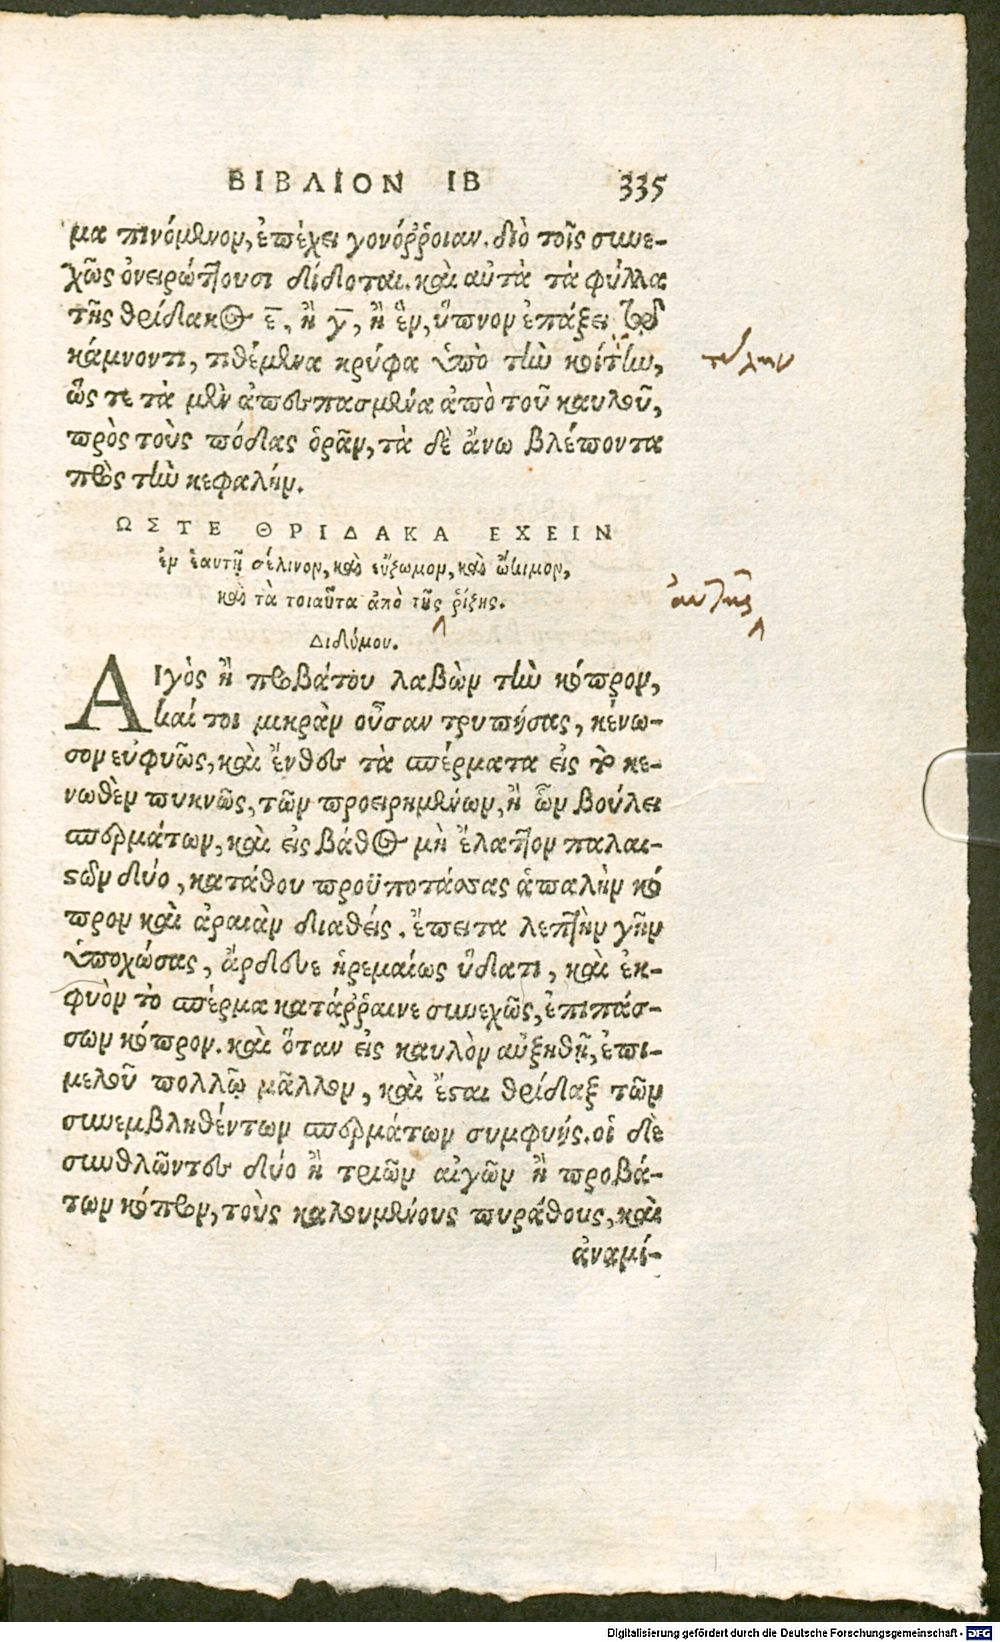 ΒΙΒΛΙΟΝ ΙΒ 335
μα πινόμενον, ἐπέχει γονόῤῥοιαν. διὸ τοῖς συνε-
χῶς ὀνειρώττουσι δίδοται. καὶ αὐτὰ τὰ φύλλα
τῆς θρίδακος ε, ἢ γ, ἢ ἓν, ὕπνον ἐπάξει τῷ
κάμνοντι, τιθέμενα κρύφα ὑπὸ τὴν κοίτην,
ὥς τε τὰ μὲν ἀπεσπασμένα ἀπὸ τοῦ καυλοῦ,
πρὸς τοὺς πόδας ὁρᾶν, τὰ δὲ ἄνω βλέποντα
πρὸς τὴν κεφαλήν.
ΩΣΤΕ ΘΡΙΔΑΚΑ ΕΧΕΙΝ
ἐν ἑαυτῇ σέλινον, καὶ εὔζωμον, καὶ ὤκιμον,
καὶ τὰ τοιαῦτα ἀπὸ τῆς ῥίζης.
αὐτῆς
Διδύμου.
Αἰγὸς ἢ προβάτου λαβὼν τὴν κόπρον,
καί τοι μικρὰν οὖσαν τρυπήσας, κένω-
σον εὐφυῶς, καὶ ἔνθες τὰ σπέρματα εἰς τὸ κε-
νωθὲν πυκνῶς, τῶν προειρημένων, ἢ ὧν βούλει
σπερμάτων, καὶ εἰς βάθος μὴ ἔλαττον παλαι-
στῶν δύο, κατάθου προϋποτάσσας ἁπαλὴν κό
προν καὶ ἀραιὰν διαθείς. ἔπειτα λεπτὴν γῆν
ὑποχώσας, ἄρδευε ἠρεμαίως ὕδατι, καὶ ἐκ-
φυὸν τὸ σπέρμα κατάῤῥαινε συνεχῶς, ἐπιπάσ-
σων κόπρον. καὶ ὅταν εἰς καυλὸν αὐξηθῇ, ἐπι-
μελοῦ πολλῷ μᾶλλον, καὶ ἔσται θρίδαξ τῶν
συνεμβληθέντων σπερμάτων συμφυής. οἱ δὲ
συνθλῶντες δύο ἢ τριῶν αἰγῶν ἢ προβά-
των κόπρον, τοὺς καλουμένους πυράθους, καὶ
ἀναμί-
Digitalisierung gefördert durch die Deutsche Forschungsgemeinschaft - DFG